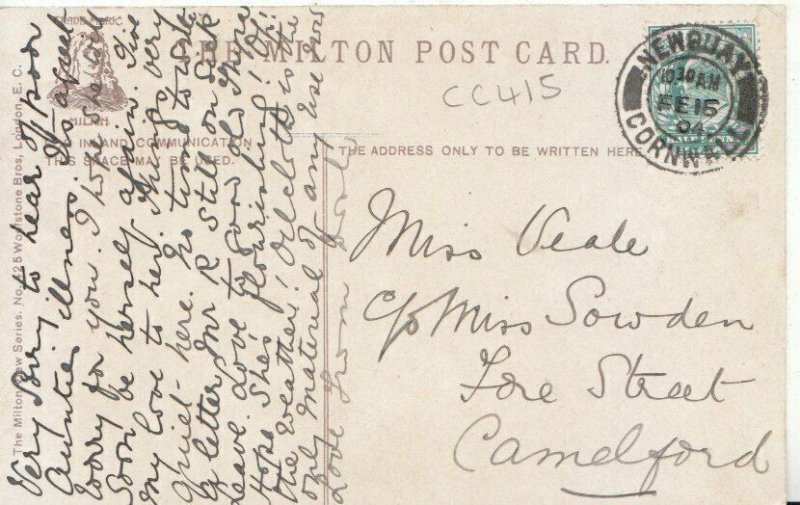 TRADE MARK
MILTON
THE MILTON POST CARD.
CC415
NEWQUAY
10.30 AM
FE 15
04
CORNWALL
INLAND COMMUNICATION
THIS SPACE MAY BE USED.
THE ADDRESS ONLY TO BE WRITTEN HERE
The Milton New Series. No. 425 Woolstone Bros, London, E.C.
Very Sorry to hear of poor
Aunties illness. It's a great
worry for you. I hope she will
soon be herself again. Give
my love to her. Things very
quiet here. No time to write
of letter. Mr R still on Sick
Leave. Love to good old Mine
Hope Shes flourishing! Oh!
the weather! Oilcloth is the
only material of any use now
Love from
Miss Veale
c/o Miss Sowden
Fore Street
Camelford